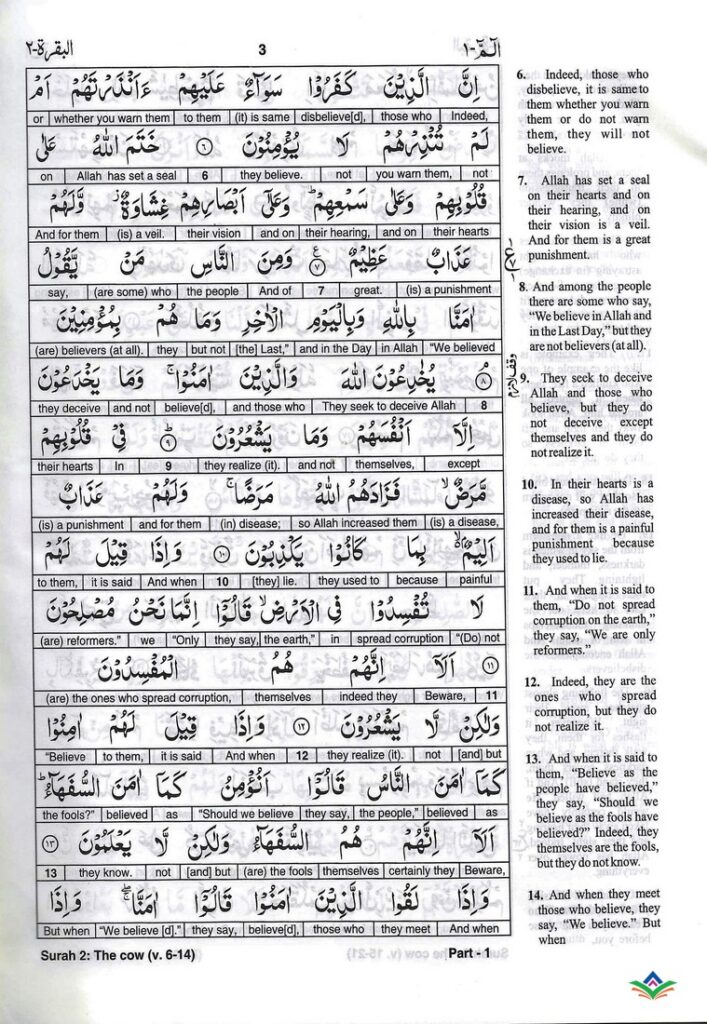 البقرة-٢ 3 الٓمّٓ-١
اِنَّ الَّذِيْنَ كَفَرُوْا سَوَآءٌ عَلَيْهِمْ ءَاَنْذَرْتَهُمْ اَمْ
or | whether you warn them | to them | (it) is same | disbelieve[d], | those who | Indeed,
لَمْ تُنْذِرْهُمْ لَا يُؤْمِنُوْنَ ۶ خَتَمَ اللّٰهُ عَلٰى
on | Allah has set a seal | 6 | they believe. | not | you warn them, | not
قُلُوْبِهِمْ وَعَلٰى سَمْعِهِمْ ؕ وَعَلٰٓى اَبْصَارِهِمْ غِشَاوَةٌ ؗ وَّلَهُمْ
And for them | (is) a veil. | their vision | and on | their hearing, | and on | their hearts
عَذَابٌ عَظِيْمٌ ۷ وَمِنَ النَّاسِ مَنْ يَّقُوْلُ
say, | (are some) who | the people | And of | 7 | great. | (is) a punishment
اٰمَنَّا بِاللّٰهِ وَبِالْيَوْمِ الْاٰخِرِ وَمَا هُمْ بِمُؤْمِنِيْنَ
(are) believers (at all). | they | but not | [the] Last,” | and in the Day | in Allah | “We believed
۸ يُخٰدِعُوْنَ اللّٰهَ وَالَّذِيْنَ اٰمَنُوْا ۚ وَمَا يَخْدَعُوْنَ
they deceive | and not | believe[d], | and those who | They seek to deceive Allah | 8
اِلَّآ اَنْفُسَهُمْ وَمَا يَشْعُرُوْنَ ۹ فِيْ قُلُوْبِهِمْ
their hearts | In | 9 | they realize (it). | and not | themselves, | except
مَّرَضٌ ۙ فَزَادَهُمُ اللّٰهُ مَرَضًا ۚ وَلَهُمْ عَذَابٌ
(is) a punishment | and for them | (in) disease; | so Allah increased them | (is) a disease,
اَلِيْمٌ ۙ بِمَا كَانُوْا يَكْذِبُوْنَ ۱۰ وَاِذَا قِيْلَ لَهُمْ
to them, | it is said | And when | 10 | [they] lie. | they used to | because | painful
لَا تُفْسِدُوْا فِي الْاَرْضِ ۙ قَالُوْٓا اِنَّمَا نَحْنُ مُصْلِحُوْنَ
(are) reformers.” | we | “Only | they say, | the earth,” | in | spread corruption | “(Do) not
۱۱ اَلَآ اِنَّهُمْ هُمُ الْمُفْسِدُوْنَ
(are) the ones who spread corruption, | themselves | indeed they | Beware, | 11
وَلٰكِنْ لَّا يَشْعُرُوْنَ ۱۲ وَاِذَا قِيْلَ لَهُمْ اٰمِنُوْا
“Believe | to them, | it is said | And when | 12 | they realize (it). | not | [and] but
كَمَآ اٰمَنَ النَّاسُ قَالُوْٓا اَنُؤْمِنُ كَمَآ اٰمَنَ السُّفَهَآءُ ؕ
the fools?” | believed | as | “Should we believe | they say, | the people,” | believed | as
اَلَآ اِنَّهُمْ هُمُ السُّفَهَآءُ وَلٰكِنْ لَّا يَعْلَمُوْنَ ۱۳
13 | they know. | not | [and] but | (are) the fools | themselves | certainly they | Beware,
وَاِذَا لَقُوا الَّذِيْنَ اٰمَنُوْا قَالُوْٓا اٰمَنَّا ۚ وَاِذَا
But when | “We believe [d].” | they say, | believe[d], | those who | they meet | And when
Surah 2: The cow (v. 6-14) Part - 1
6. Indeed, those who
disbelieve, it is same to
them whether you warn
them or do not warn
them, they will not
believe.
7. Allah has set a seal
on their hearts and on
their hearing, and on
their vision is a veil.
And for them is a great
punishment.
8. And among the people
there are some who say,
“We believe in Allah and
in the Last Day,” but they
are not believers (at all).
9. They seek to deceive
Allah and those who
believe, but they do
not deceive except
themselves and they do
not realize it.
10. In their hearts is a
disease, so Allah has
increased their disease,
and for them is a painful
punishment because
they used to lie.
11. And when it is said to
them, “Do not spread
corruption on the earth,”
they say, “We are only
reformers.”
12. Indeed, they are the
ones who spread
corruption, but they do
not realize it.
13. And when it is said to
them, “Believe as the
people have believed,”
they say, “Should we
believe as the fools have
believed?” Indeed, they
themselves are the fools,
but they do not know.
14. And when they meet
those who believe, they
say, “We believe.” But
when